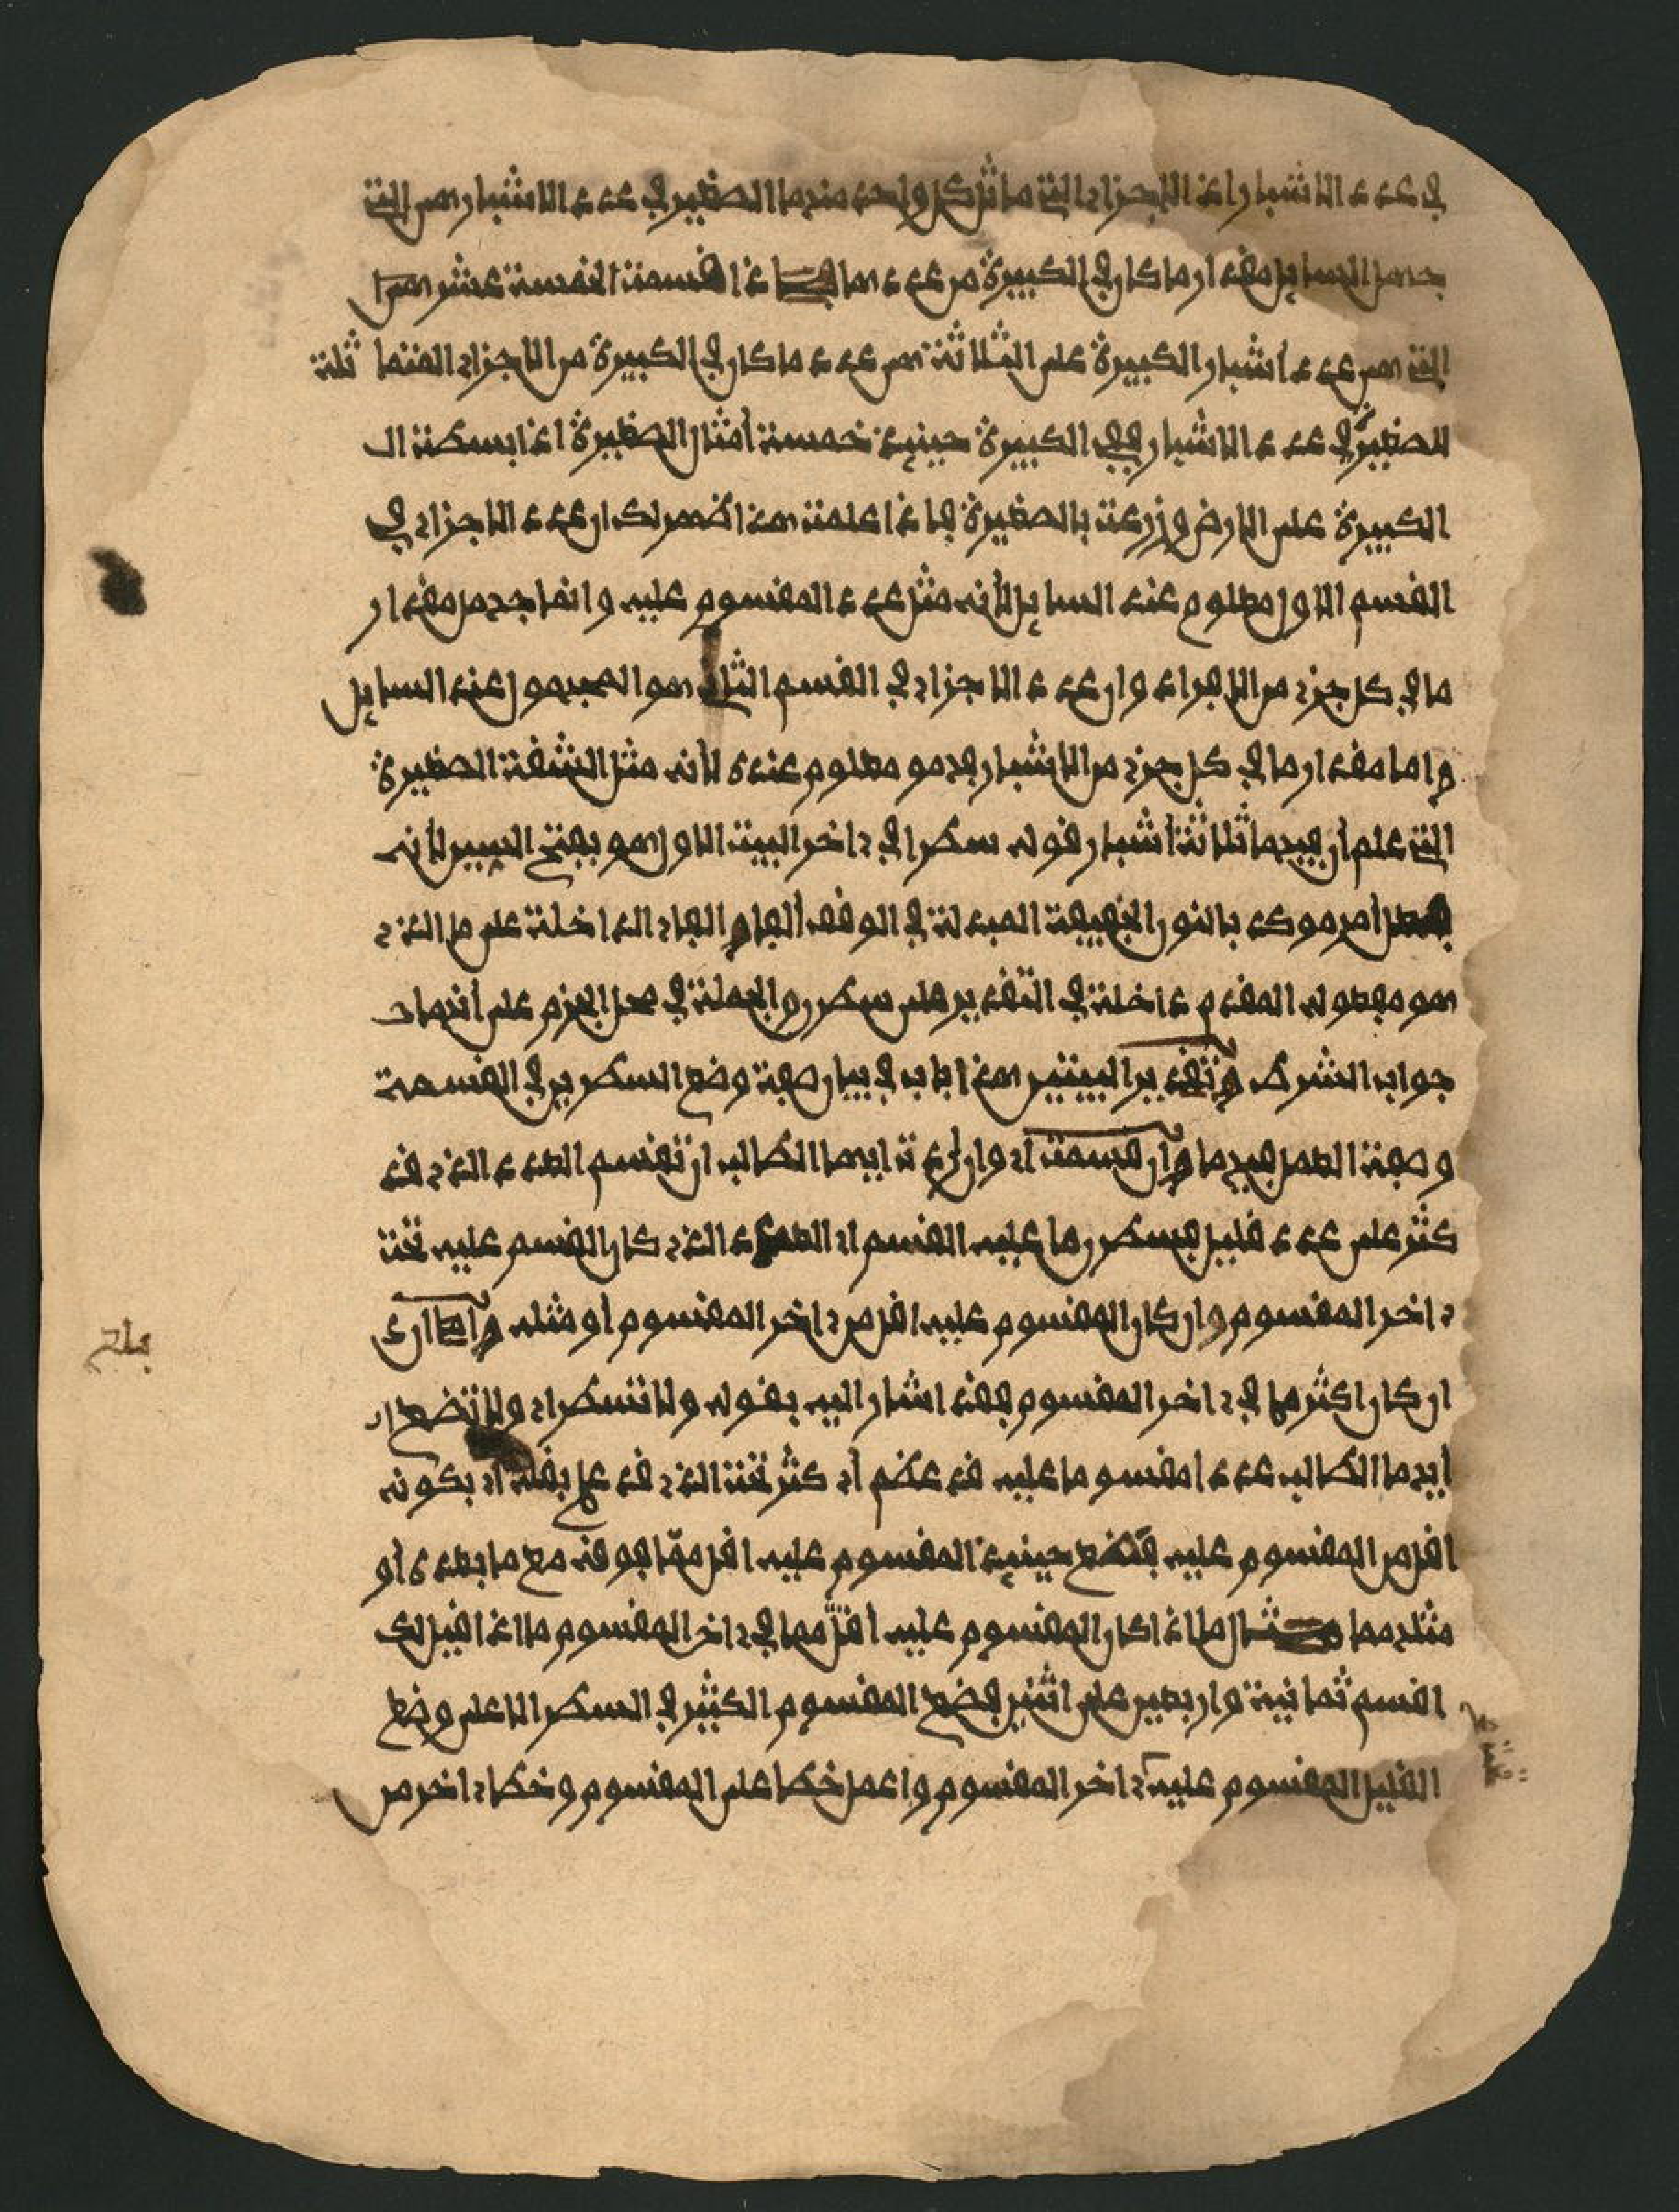 في عدد الاشبار اذ الاجزاء التي ماثل كل واحد منهما الصغير في عدد الاشبار هي التي
جهل السايل مقدار ما كان في الكبيرة من عددها فاذا قسمت الخمسة عشر
التي هي عدد أشبار الكبيرة على الثلاثة هي عدد ما كان في الكبيرة من الاجزاء ثلة
للصغيرة في عدد الاشبار ففي الكبيرة حينيذ خمسة أمثال الصغيرة اذا بسطت ال
الكبيرة على الارض وزرعت بالصغيرة فاذا علمت هذا ظهر لك ان عدد الاجزاء في
القسم الاول معلوم عند السايل لأنه مثل عدد المقسوم عليه وانما جهل مقدار
ما في كل جزء من الافراد وان عدد الاجزاء في القسم الثاني هو المجهول عند السايل
واما مقدار ما في كل جزء من الاشبار فهو معلوم عنده لأنه مثل الشقة الصغيرة
التي علم أن فيها ثلاثة أشبار قوله سطرا في ءاخر البيت الاول هو بفتح السين لأنه
أمر موكد بالنون الخفيفة المبدلة في الوقف ألفا والفاء الداخلة على ما الذي
هو مفعوله المقدم داخلة في التقدير على سطر والجملة في محل الجزم على أنها
جواب الشرط وتقدير البيتين هذا باب في بيان صفة وضع السطرين في القسمة
وصفة العمل فيهما وان قسمت اي وان اردت ايها الطالب ان تقسم العدد الذي قد
كثر على عدد قليل فسطر ما عليه القسم اي العدد الذي كان القسم عليه تحت
ءاخر المقسوم وان كان المقسوم عليه اقل من ءاخر المقسوم أو مثله
ان كان اكثر مما في ءاخر المقسوم فقد اشار اليه بقوله ولا تسطر اي ولا تضع
أيها الطالب عددا مقسوما عليه قد عظم أي كثر تحت الذي قد بقلة اي بكونه
اقل من المقسوم عليه فتضع حينيذ المقسوم عليه اقل مما فوقه مع ما بعده او
مثلهما مثال ما اذا كان المقسوم عليه أقل مما في ءاخر المقسوم ما اذا قيل لك
اقسم ثمانية واربعين على اثنين فضع المقسوم الكثير في السطر الاعلى وضع
القليل المقسوم عليه ءاخر المقسوم واعمل خطا على المقسوم وخطا ءاخر من